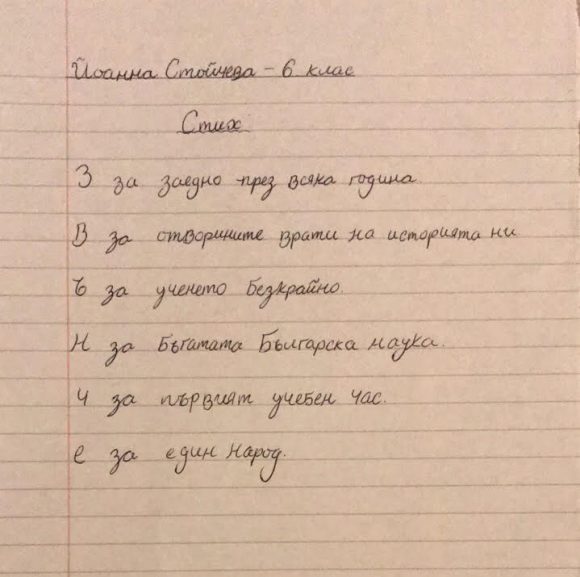 Йоанна Стойчева - 6 клас
Стих
З за заедно през всяка година.
В за отворините врати на историята ни
Ъ за ученето безкрайно.
Н за Бъгатата Българска наука.
Ч за първият учебен час.
е за един народ.